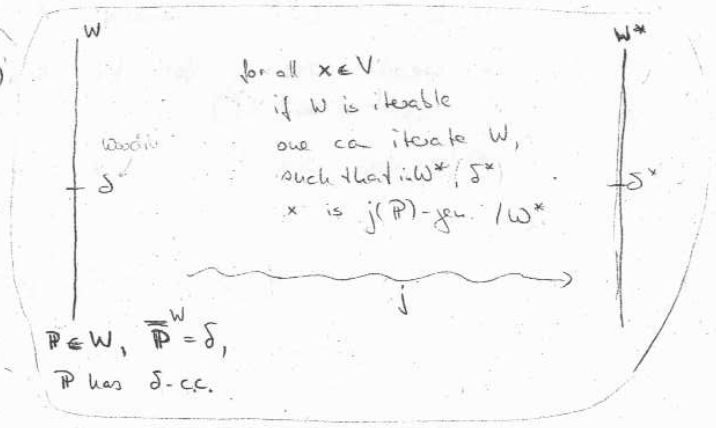 W
W*
for all x ∈ V
if W is iterable
one can iterate W,
such that in W*, δ*
x is j(ℙ)-gen. / W*
Woodin
δ
δ*
j
ℙ ∈ W, \overline{\overline{ℙ}}^W = δ,
ℙ has δ-c.c.